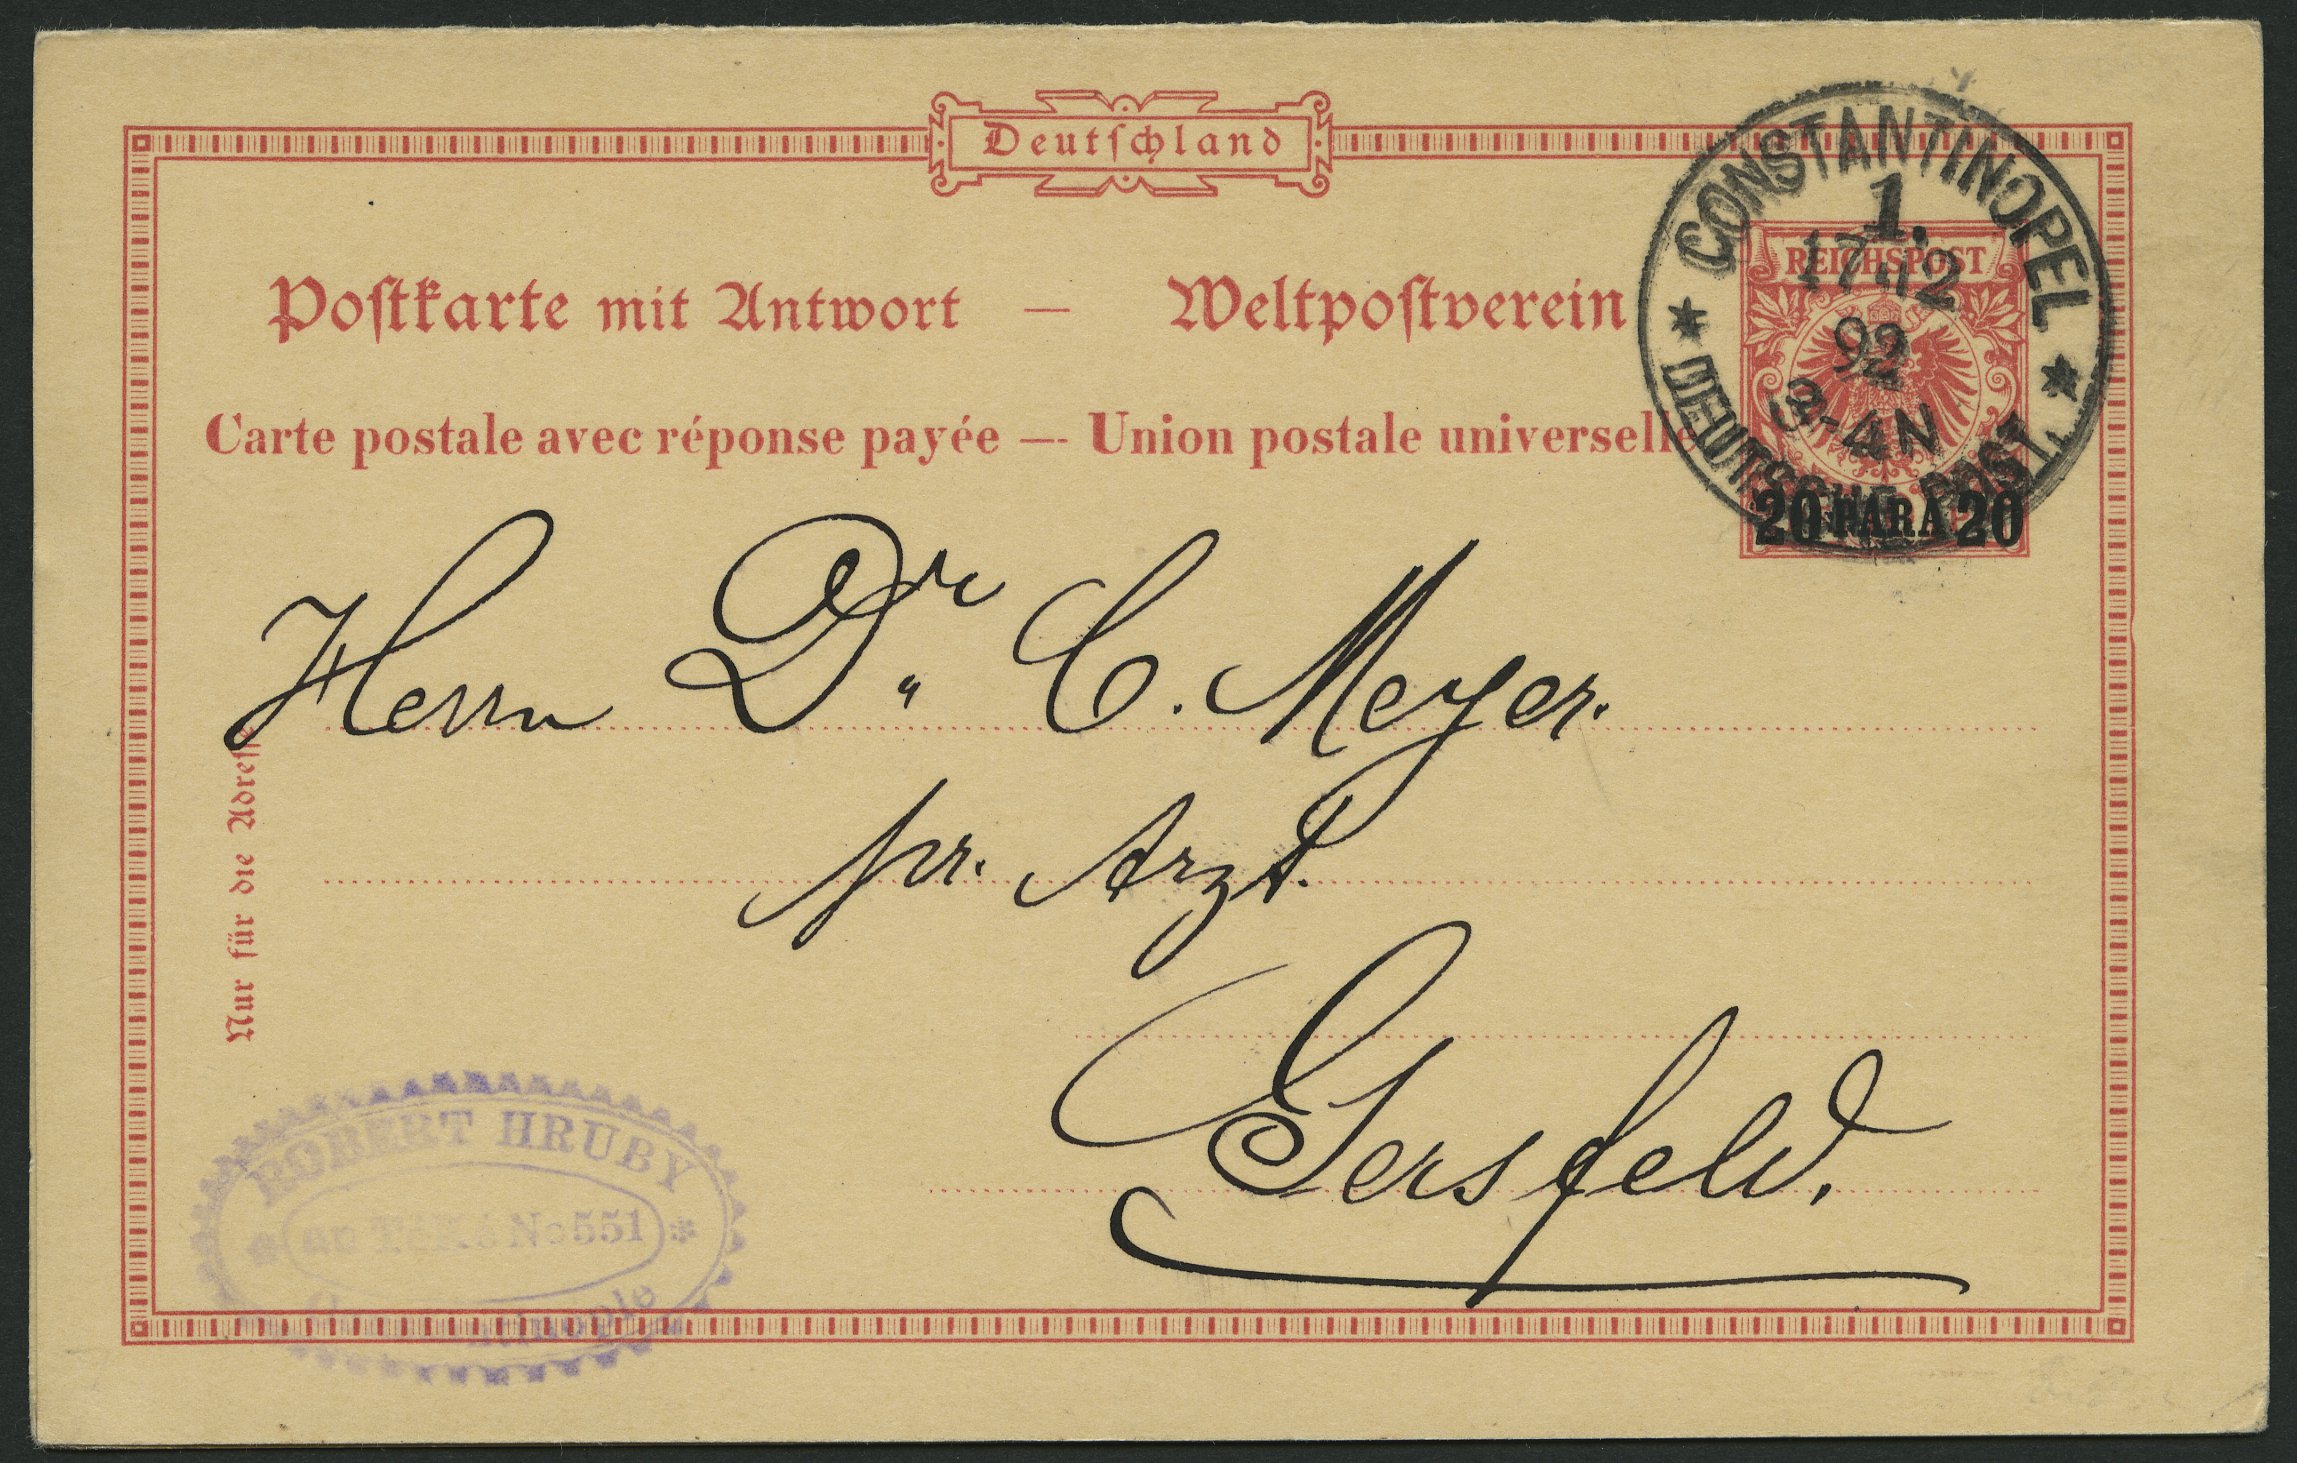 Deutschland
Postkarte mit Antwort — Weltpostverein
Carte postale avec réponse payée — Union postale universelle
CONSTANTINOPEL
1.
REICHSPOST
17 12
92
3-4N
* DEUTSCHE POST. *
20 PARA 20
Herrn Dr. C. Meyer.
pr. Arzt.
Gersfeld.
Nur für die Adresse
ROBERT HRUBY
No 551 *
Constantinople